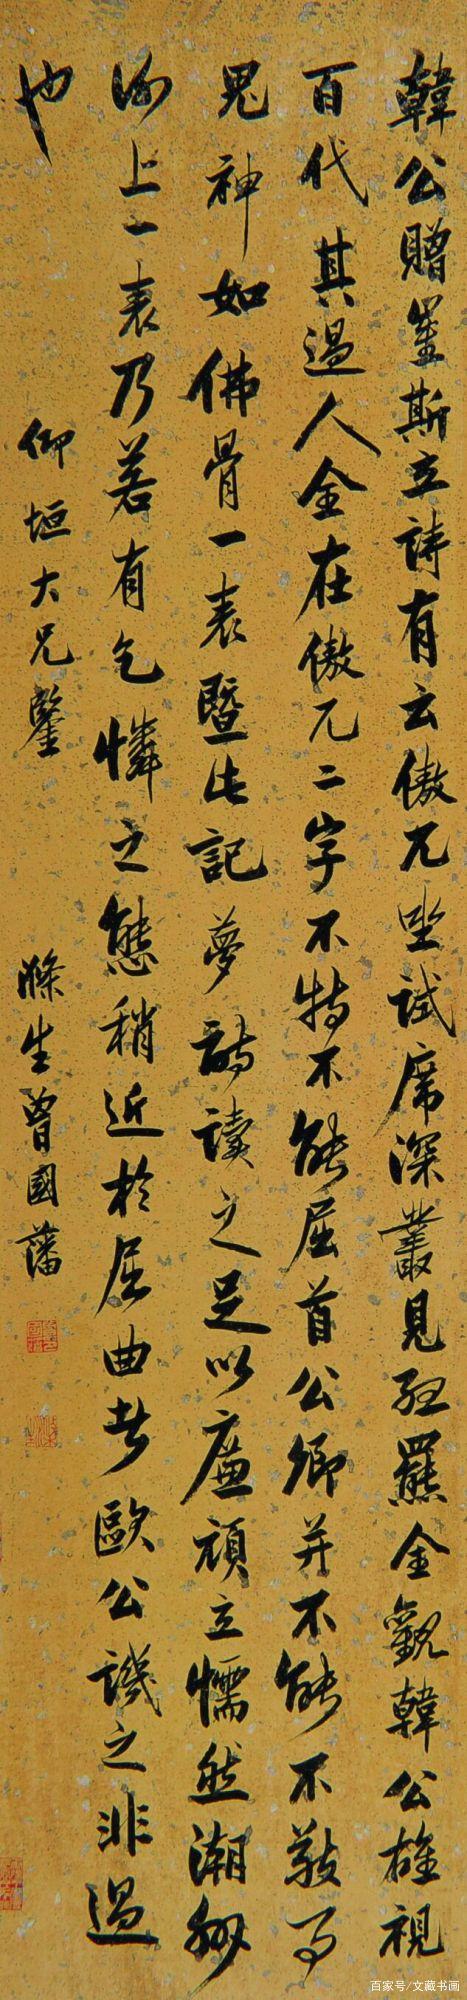 韓公贈崔斯立詩有云傲兀坐試席深叢見孤羆余觀韓公雄視
百代其過人全在傲兀二字不特不能屈首公卿并不能不敬事
鬼神如佛骨一表暨此記夢詩讀之足以廉頑立懦然潮州
謝上一表乃若有乞憐之態稍近於屈曲者歐公譏之非過
也
仰垣大兄鑒
滌生曾國藩
百家号/文藏书画